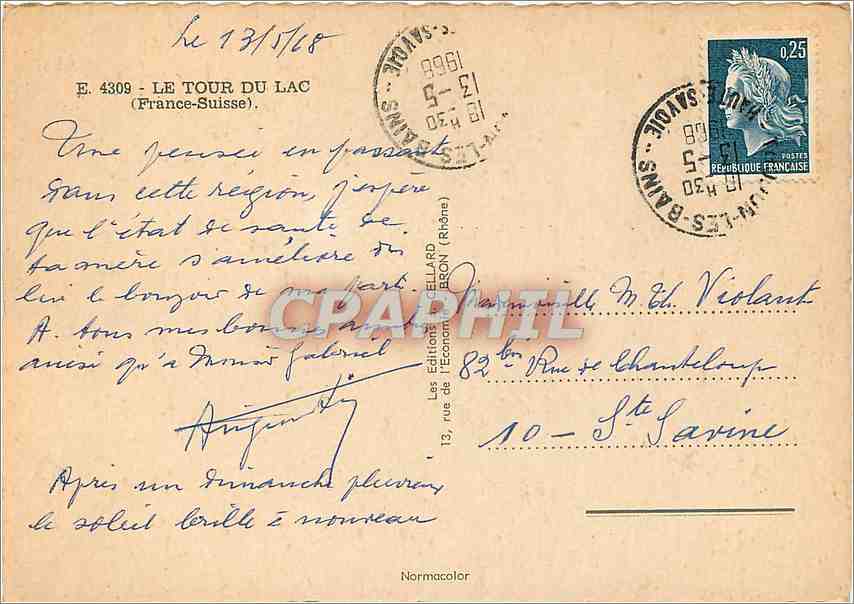 Le 13/5/68
E. 4309 - LE TOUR DU LAC
(France-Suisse).
Une pensée en passant
dans cette région, j'espère
que l'état de santé de
ta mère s'améliore
lui le bonjour de ma part.
A tous mes bonnes
ainsi qu'à Gabriel
Après un dimanche pluvieux
le soleil brille à nouveau
-LES-BAINS -- -SAVOIE
18 H30
13 -5
1968
0,25
POSTES
REPUBLIQUE FRANÇAISE
-LES-BAINS -- HAUTE-SAVOIE
18 H30
13 -5
1968
Les Editions GELLARD
13, rue de l'Economie BRON (Rhône)
CPAPHIL
Mademoiselle M. Th. Violant
82 bis Rue de Chanteloup
10 - Ste Savine
Normacolor